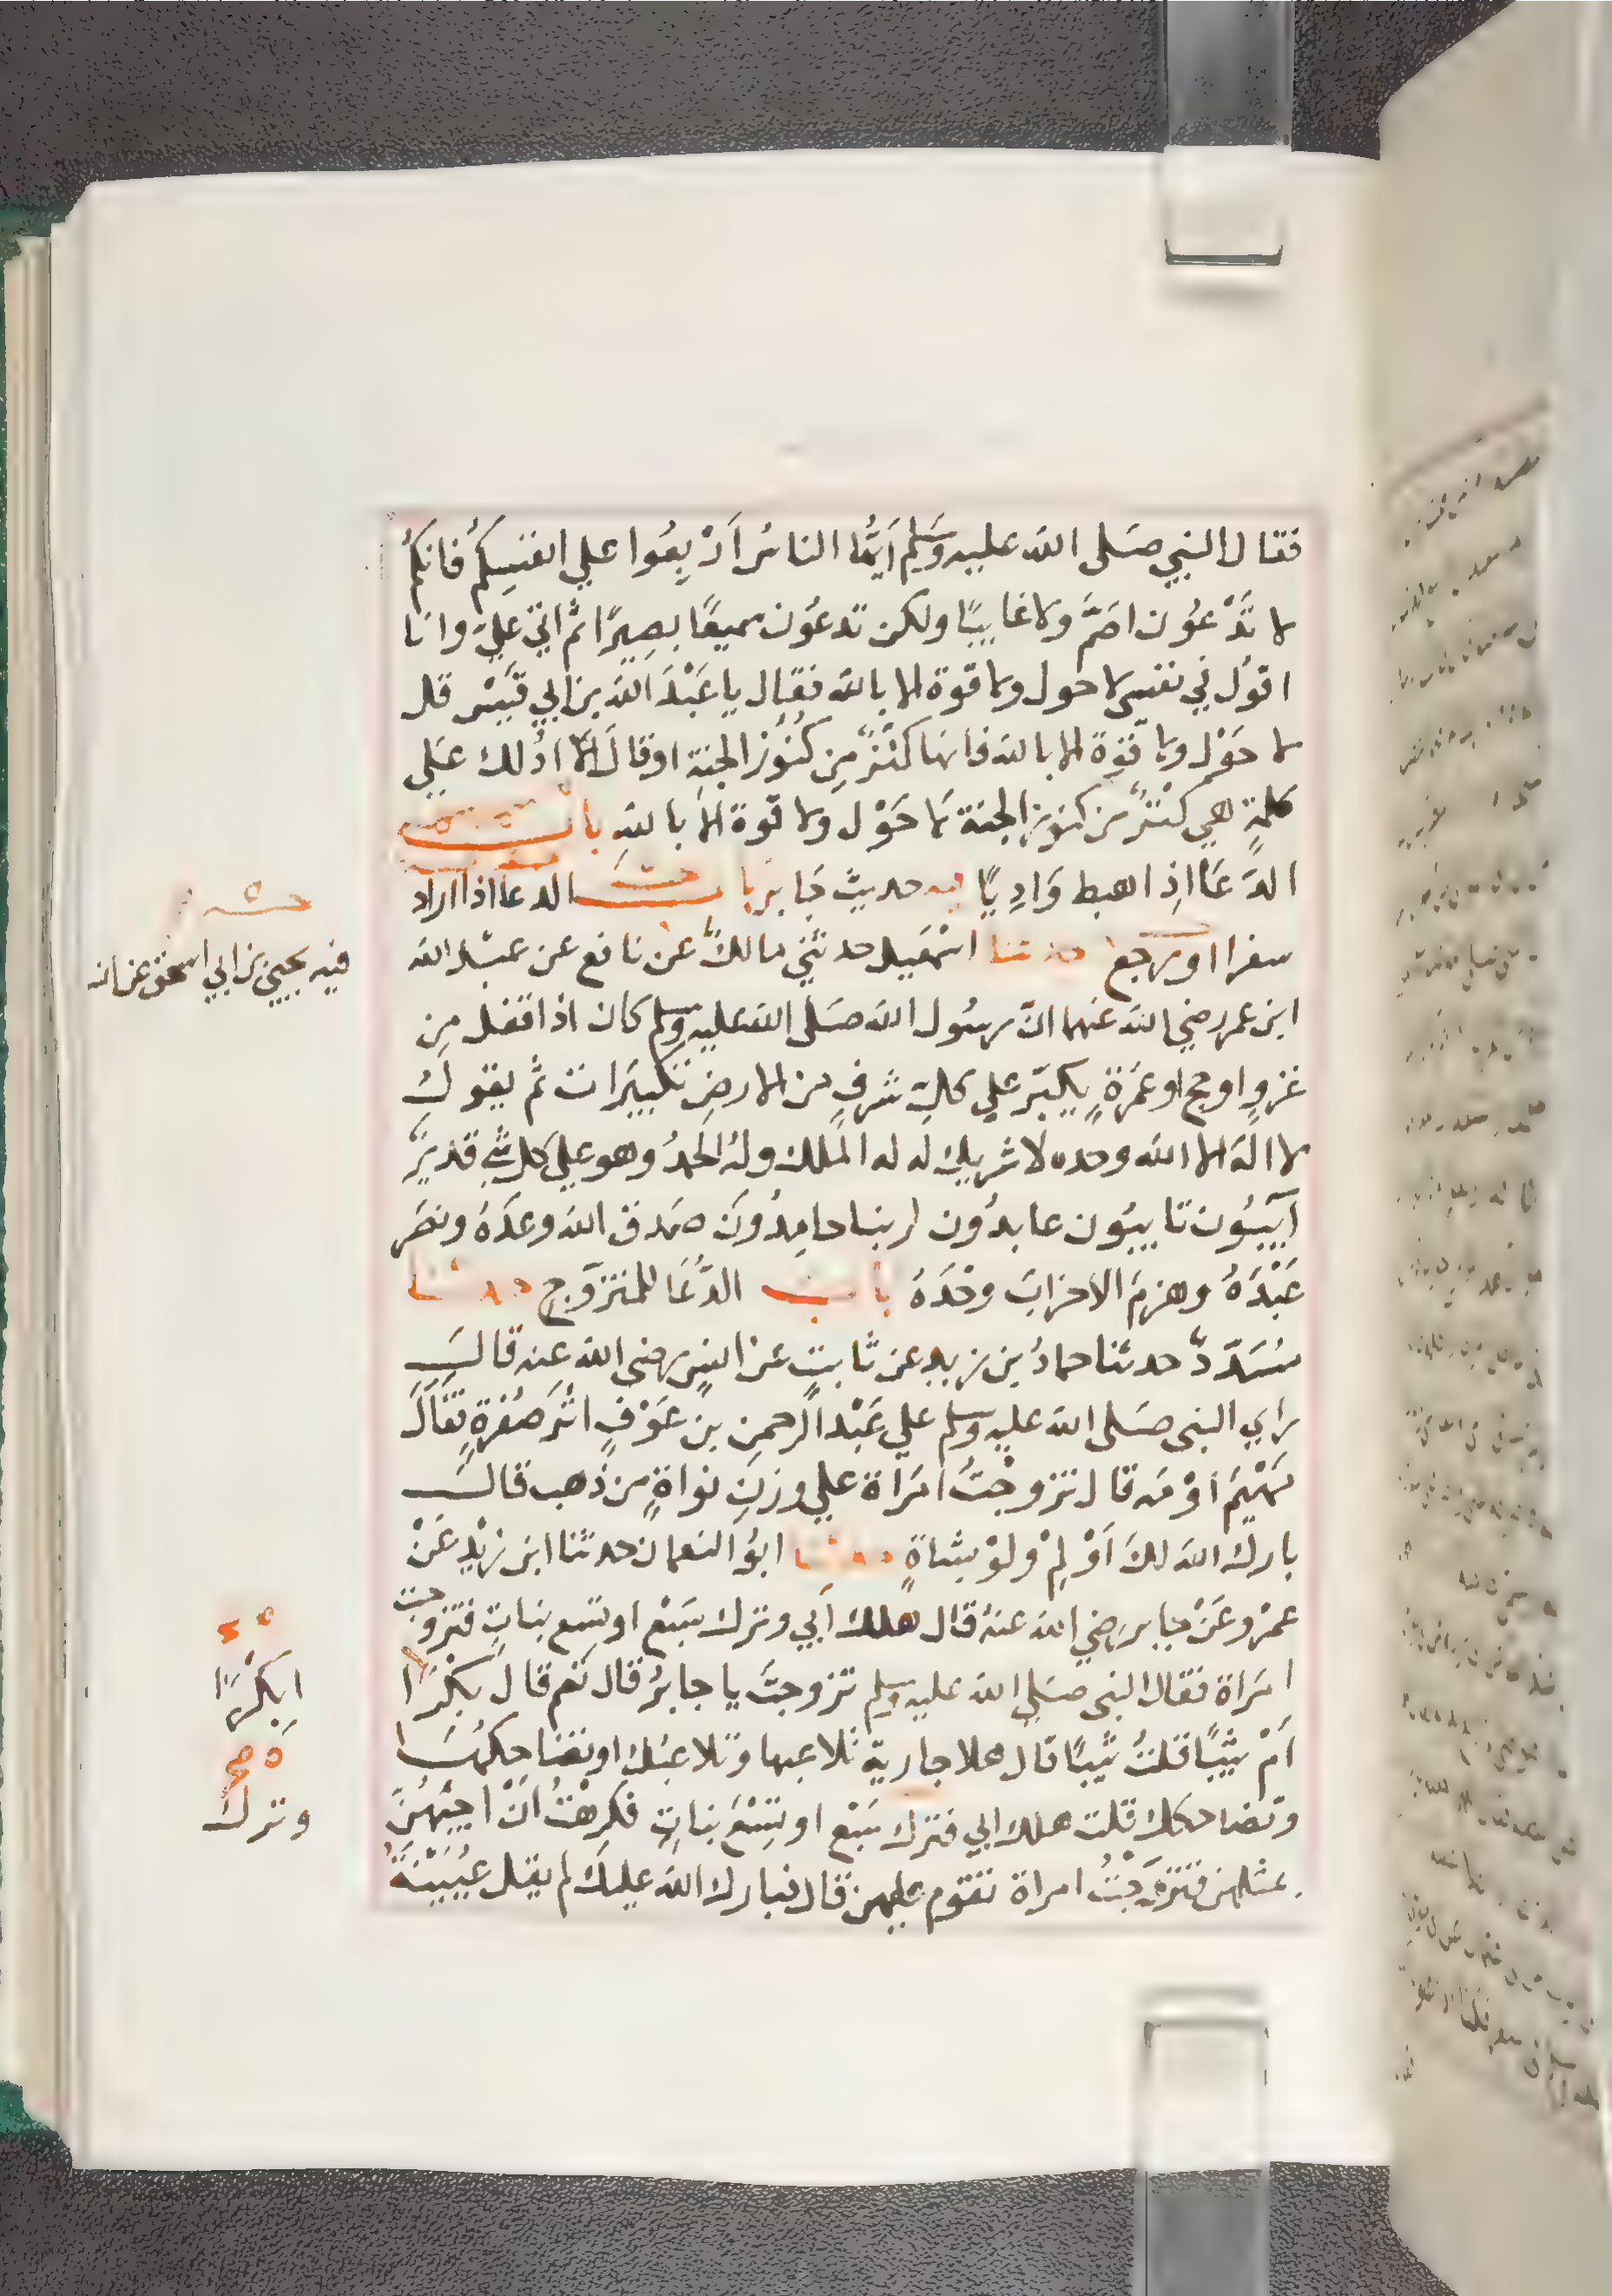 فقال النبي صَلى الله عليه وَسَلم اَيُّها الناسُ اَرْبِعُوا علي انفسِكُم فانكمُ
لا تَدْعُون اصَمَّ ولا غايبًا ولكن تدعُون سميعًا بصِيرًا ثم اتي عَليَّ وانا
اقولُ في نفسي لا حول ولا قوة الا بالله فقال يا عَبْدَ الله بن ابي قيَسْ قل
لا حَوْل ولا قوة الا بالله فانها كنْزٌ مِن كُنُوز الجنةِ او قالَ الَا ادُلك عَلي
كلمةٍ هي كنْزٌ من كنوز الجنة لا حَوْل ولا قوة الا باللهِ باب
الدعَا اذِا هبط وَادِيًا فيه حديث جَابر باب الدعا اذا اراد
سفرا او رجع حدثنا اسمعيل حدثني مالكٌ عن نافع عن عبْد الله
ابن عمر رضي الله عنهما انّ رسُول الله صَلى الله عليه وسلم كان اذا قفل مِن
غزوٍ او حج او عمَرَةٍ يكبّر علي كلِ شرفٍ من الارضِ تكبيَرات ثم يقولُ
لا الهَ الا الله وحده لا شريك له له الملك ولهُ الحمدُ وهو علي كل شيٍ قديرٌ
آيِبُون تايبُون عابدُون لربنا حامِدُونَ صَدق الله وعدَهُ ونصَر
عَبْدَهُ وهزمَ الاحزابَ وحْدَهُ باب الدُّعَا للمتزوّجِ حدثنا
مسَدّدٌ حدثنا حمادُ بن زيد عن ثابتٍ عن انسٍ رضي الله عنه قالَ
راي النبي صَلى الله عليه وسلم علي عَبْد الرحمن بن عَوْفٍ اثرَ صُفرةٍ فقَالَ
مَهْيَمْ اوْ مَه قال تزوجْتُ امَرَاة علي وزنِ نواةٍ من ذهب قال
بارك الله لكَ اَوْلِمْ ولوْ بشاةٍ حدثنا ابوُ النعمان حدثنا ابن زيْدٍ عَنْ
عمرْو عَنْ جابر رَضي الله عنهُ قال هلك اَبي وترك سَبْع او تسِع بناتٍ فتزوجت
امَراة فقال النبي صَلي الله عليه وسلم تزوجتَ يا جابرُ قال نعَم قالَ بكْرًا
اَمْ ثيبًا قلتُ ثيبًا قال هلا جارية تلاعبها وتلاعبُك او تضَاحكهَا
وتضاحكك قلت هلك ابي فترك سَبْع او تِسْعَ بناتٍ فكرِهْتُ اَنْ اجيئهُنَّ
بمثلهن فتزوَجْتُ امراة تقوم عليهن قال فبارك الله عليكَ لم يقل عُيَيْنَةُ
فيه يحيي بن ابي اسحق عن انس
ابكْرًا
صح
وترك